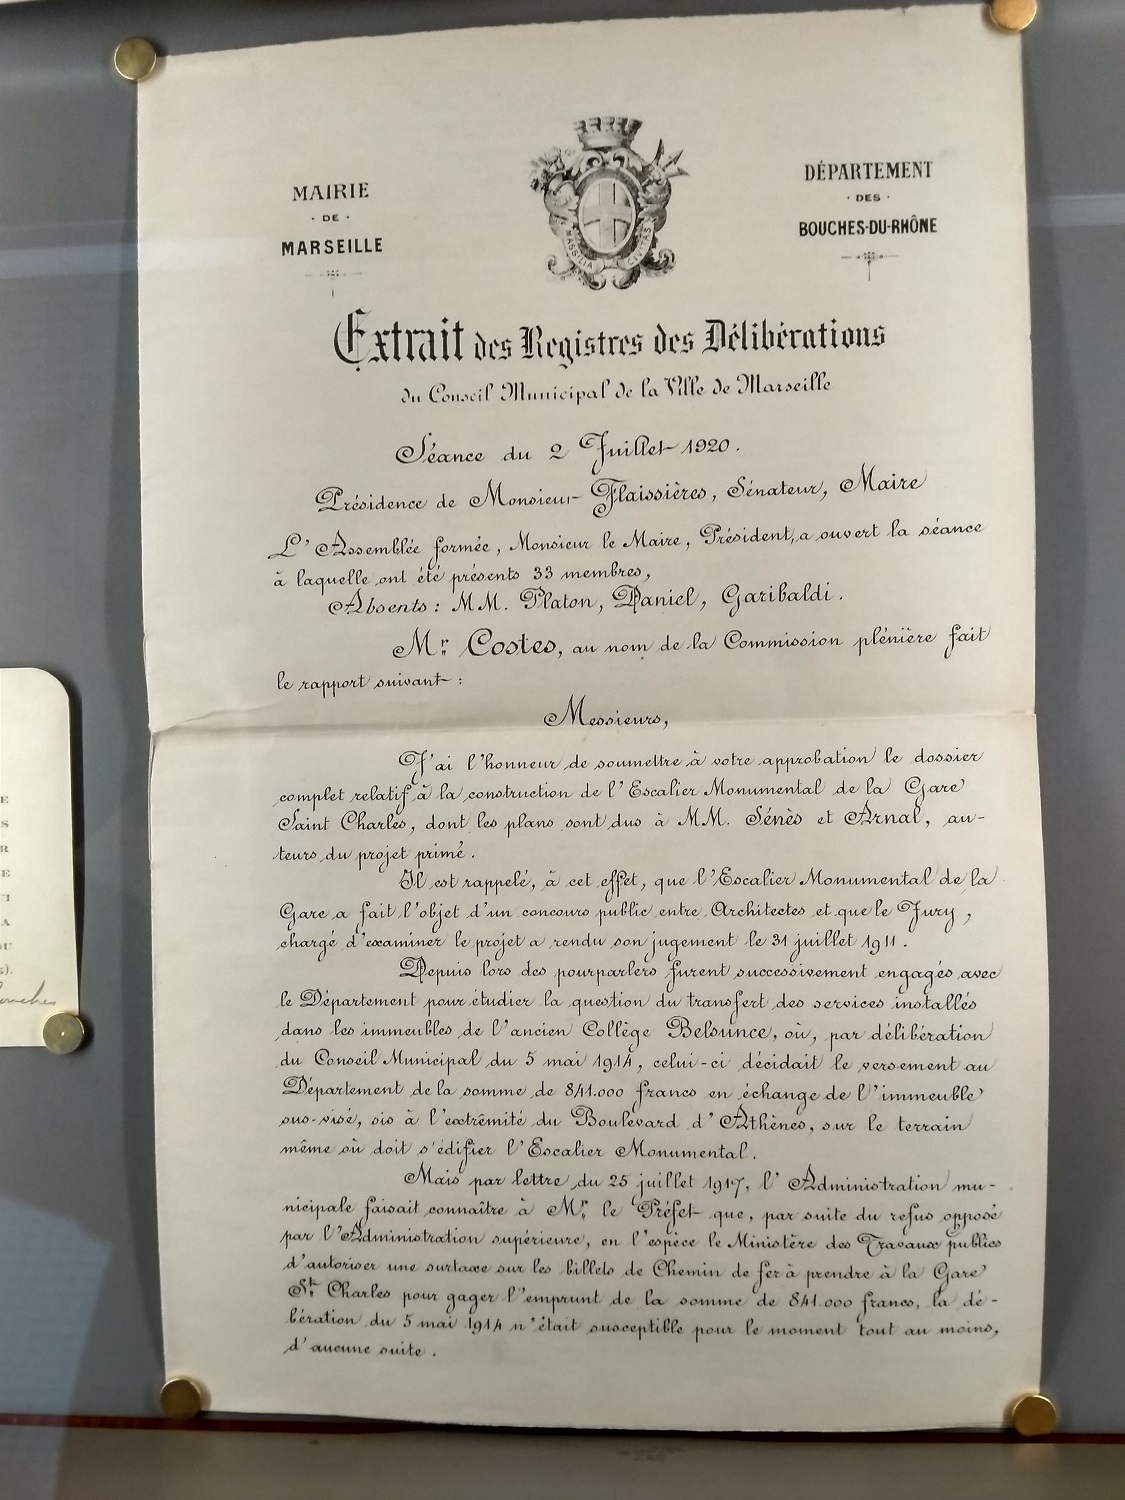 MAIRIE
· DE ·
MARSEILLE
DÉPARTEMENT
· DES ·
BOUCHES-DU-RHÔNE
MASSILIA CIVITAS
Extrait des Registres des Délibérations
du Conseil Municipal de la Ville de Marseille
Séance du 2 Juillet 1920.
Présidence de Monsieur Flaissières, Sénateur, Maire
L'Assemblée formée, Monsieur le Maire, Président, a ouvert la séance
à laquelle ont été présents 33 membres,
Absents : MM. Platon, Daniel, Garibaldi.
Mr. Costes, au nom de la Commission plénière fait
le rapport suivant :
Messieurs,
J'ai l'honneur de soumettre à votre approbation le dossier
complet relatif à la construction de l'Escalier Monumental de la Gare
Saint Charles, dont les plans sont dus à MM. Sénès et Arnal, au-
teurs du projet primé.
Il est rappelé, à cet effet, que l'Escalier Monumental de la
Gare a fait l'objet d'un concours public entre Architectes et que le Jury,
chargé d'examiner le projet a rendu son jugement le 31 juillet 1911.
Depuis lors des pourparlers furent successivement engagés avec
le Département pour étudier la question du transfert des services installés
dans les immeubles de l'ancien Collège Belsunce, où, par délibération
du Conseil Municipal du 5 mai 1914, celui-ci décidait le versement au
Département de la somme de 841.000 francs en échange de l'immeuble
sus-visé, sis à l'extrêmité du Boulevard d'Athènes, sur le terrain
même où doit s'édifier l'Escalier Monumental.
Mais par lettre du 25 juillet 1917, l'Administration mu-
nicipale faisait connaître à Mr. le Préfet que, par suite du refus opposé
par l'Administration supérieure, en l'espèce le Ministère des Travaux publics
d'autoriser une surtaxe sur les billets de Chemin de fer à prendre à la Gare
St. Charles pour gager l'emprunt de la somme de 841.000 francs, la dé-
libération du 5 mai 1914 n'était susceptible pour le moment tout au moins,
d'aucune suite.